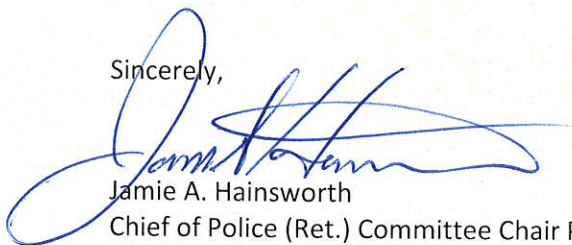 Sincerely,
Jamie A. Hainsworth
Chief of Police (Ret.) Committee Chair